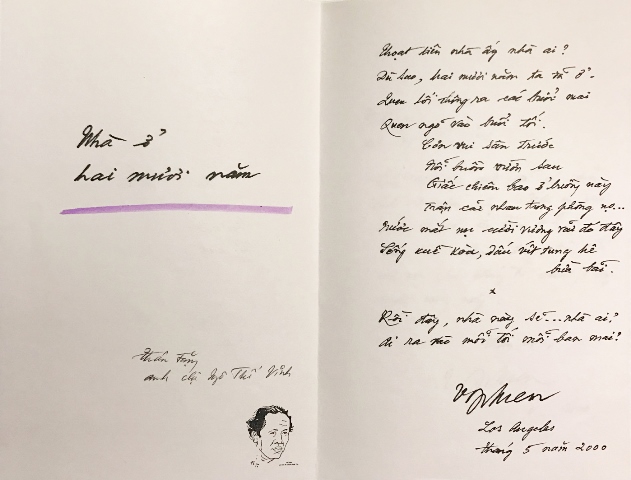 Nhà ở
hai mươi năm
thân tặng
anh chị Ngô Thế Vinh
Thoạt tiên nhà ấy nhà ai?
Dù sao, hai mươi năm ta đã ở.
Quen lối thông ra các buổi mai
Quen ngõ vào buổi tối.
Cơn vui sân trước
Nỗi buồn vườn sau
Giấc chiêm bao ở buồng này
Trận cãi nhau trong phòng nọ...
Nước mắt nụ cười vương vãi đó đây
Sống xuề xòa, dấu vết tung hê
bừa bãi.
*
Rồi đây, nhà này sẽ... nhà ai?
Ai ra vào mỗi tối mỗi ban mai?
Võ Phiến
Los Angeles
tháng 5 năm 2000